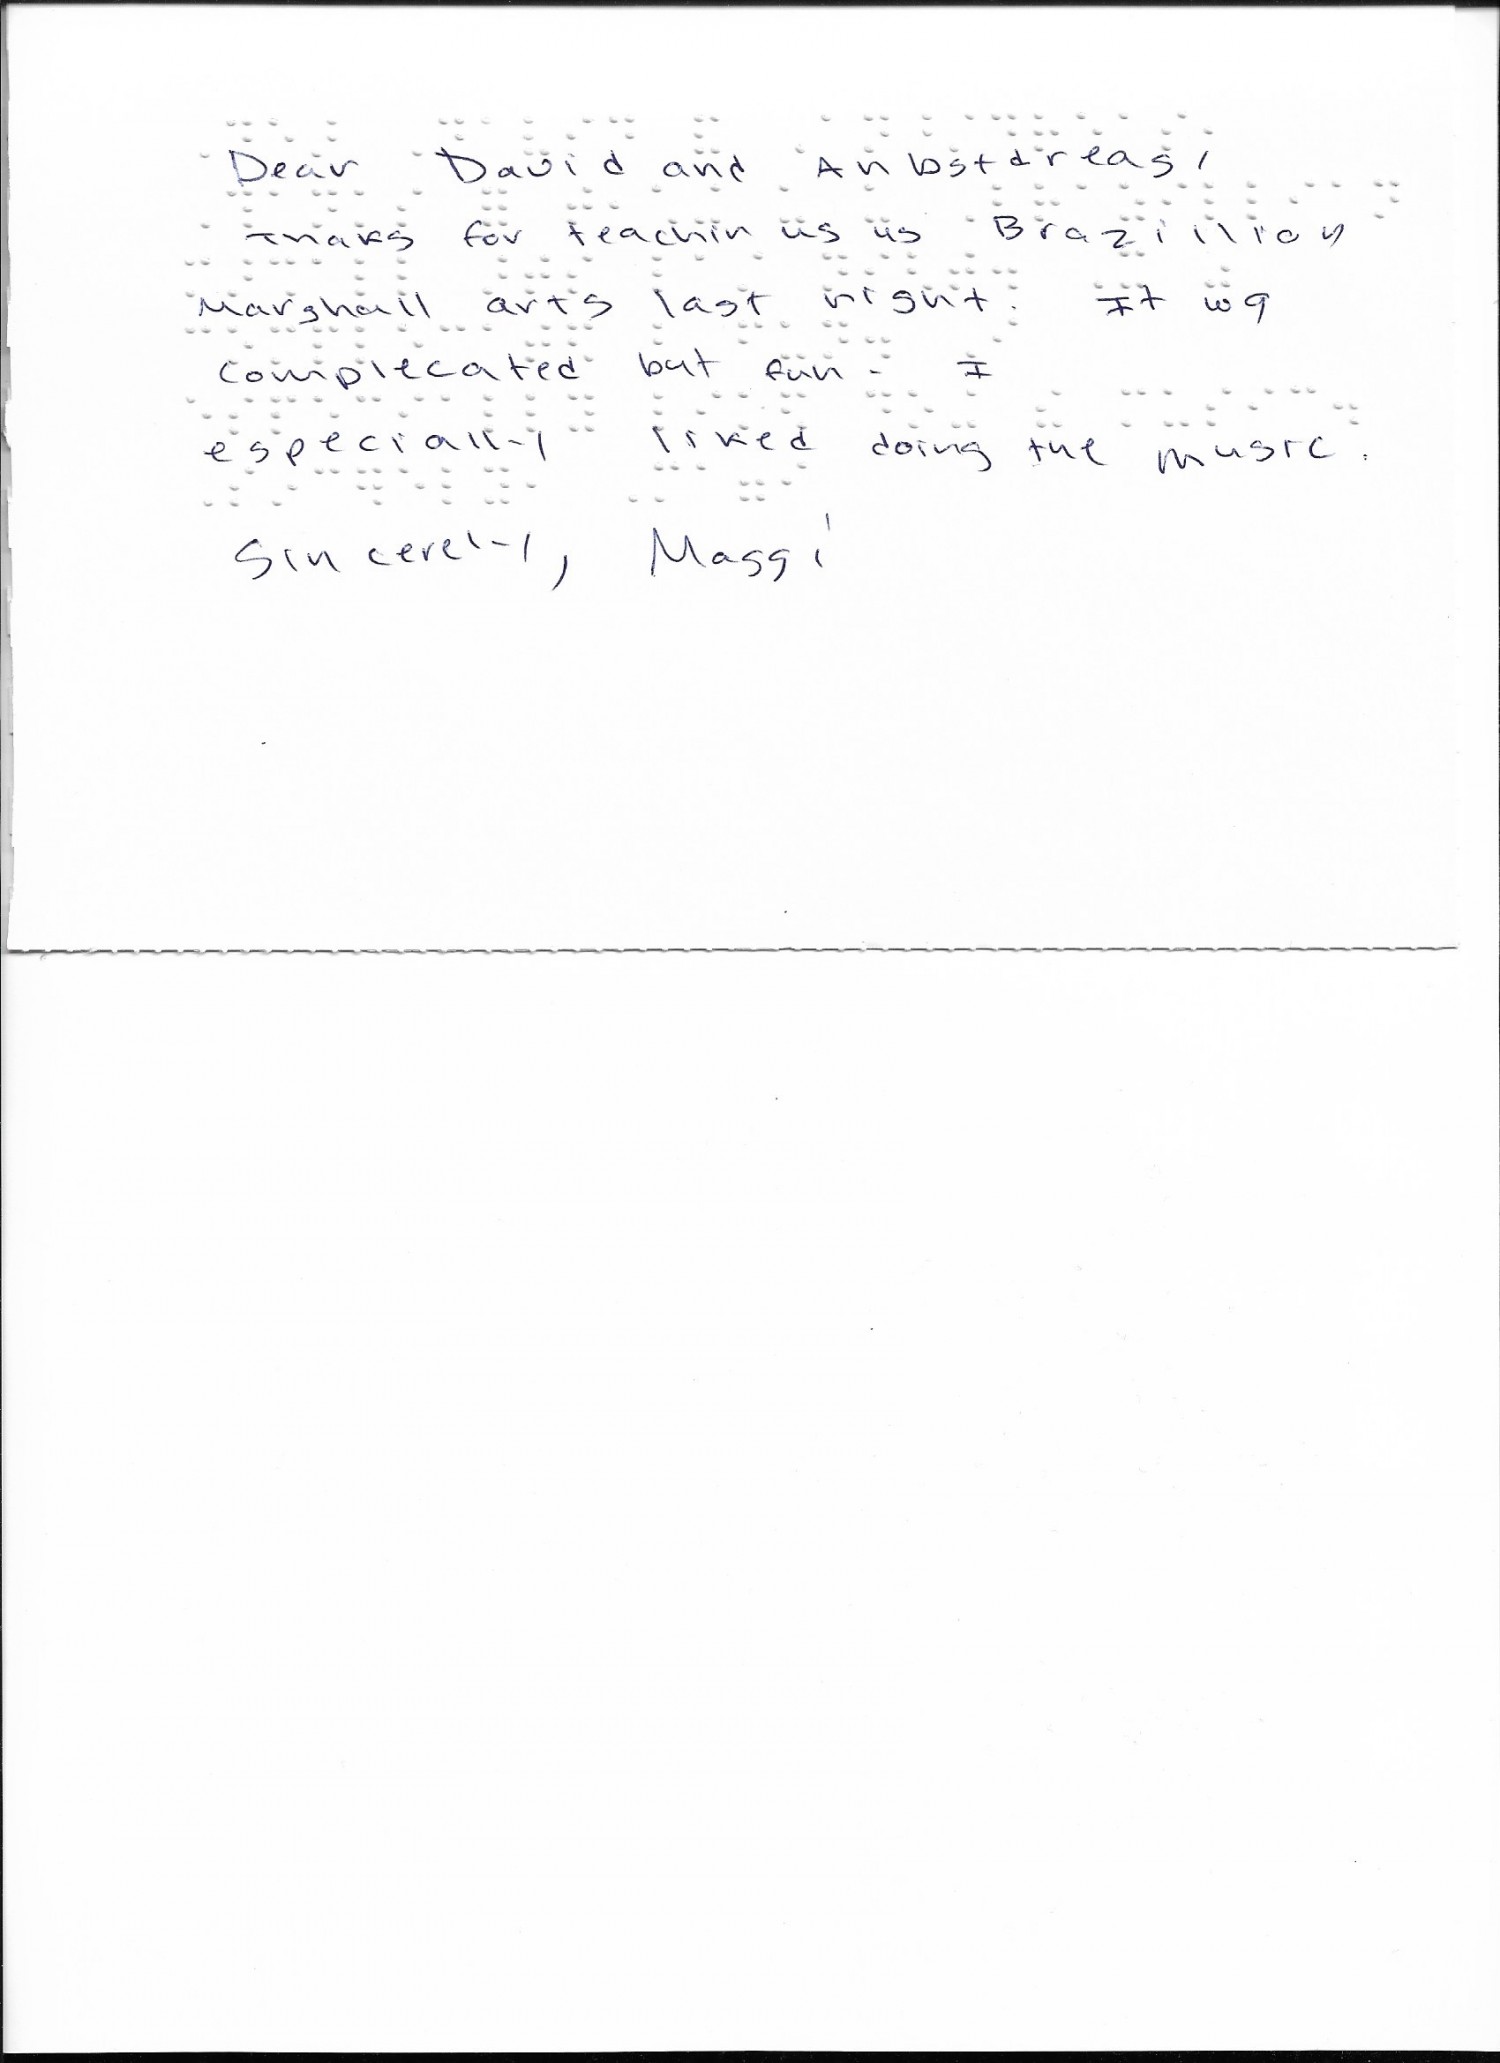 Dear David and Anbstdreas,
Thaks for teachin us us Brazillion
Marshall arts last night. It wa
complecated but fun. I
especially liked doing the music.
Sincerely, Maggi